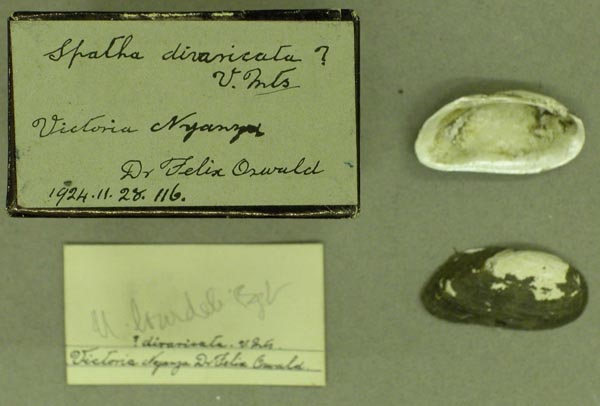 Spatha divaricata ?
V. Mts
Victoria Nyanza
Dr Felix Oswald
1924.11.28.116.
? divaricata. v Mts.
Victoria Nyanza Dr Felix Oswald.